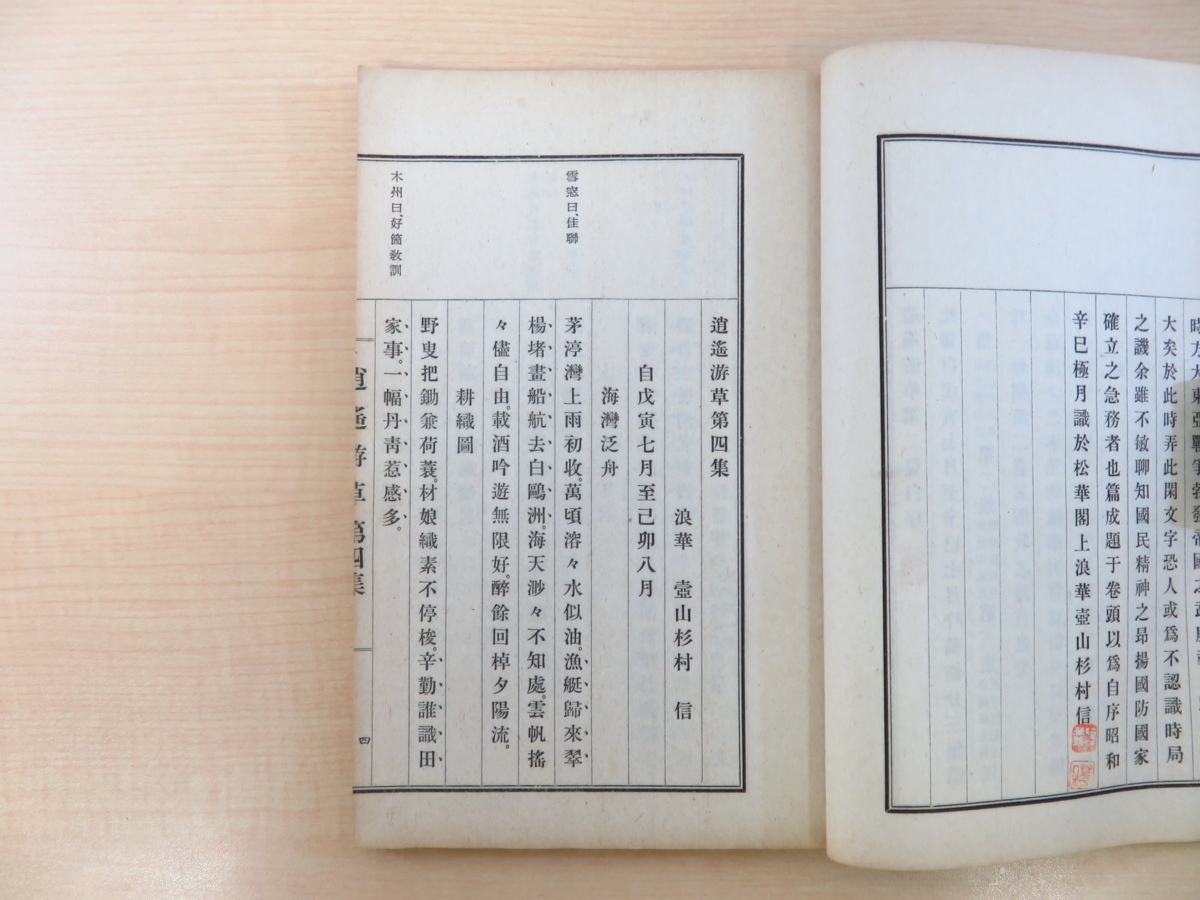 大矣於此時弄此閑文字恐人或爲不認識時局
之譏余雖不敏聊知國民精神之昻揚國防國家
確立之急務者也篇成題于卷頭以爲自序昭和
辛巳極月識於松華閣上浪華壺山杉村信
逍遙游草第四集
浪華　壺山杉村　信
自戊寅七月至己卯八月
海灣泛舟
雪窓曰、佳聯
茅渟灣上雨初收。萬頃溶々水似油。漁艇歸來翠
楊堵。畫船航去白鷗洲。海天渺々不知處。雲帆搖
々儘自由。載酒吟遊無限好。醉餘回棹夕陽流。
耕織圖
野叟把鋤兼荷蓑。村娘織素不停梭。辛勤誰識田
木州曰、好箇敎訓
家事。一幅丹靑惹感多。
逍遙游草第四集
四